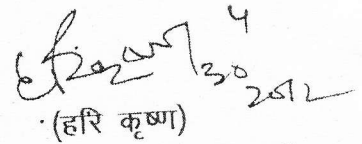 4
30
2012
(हरि कृष्ण)